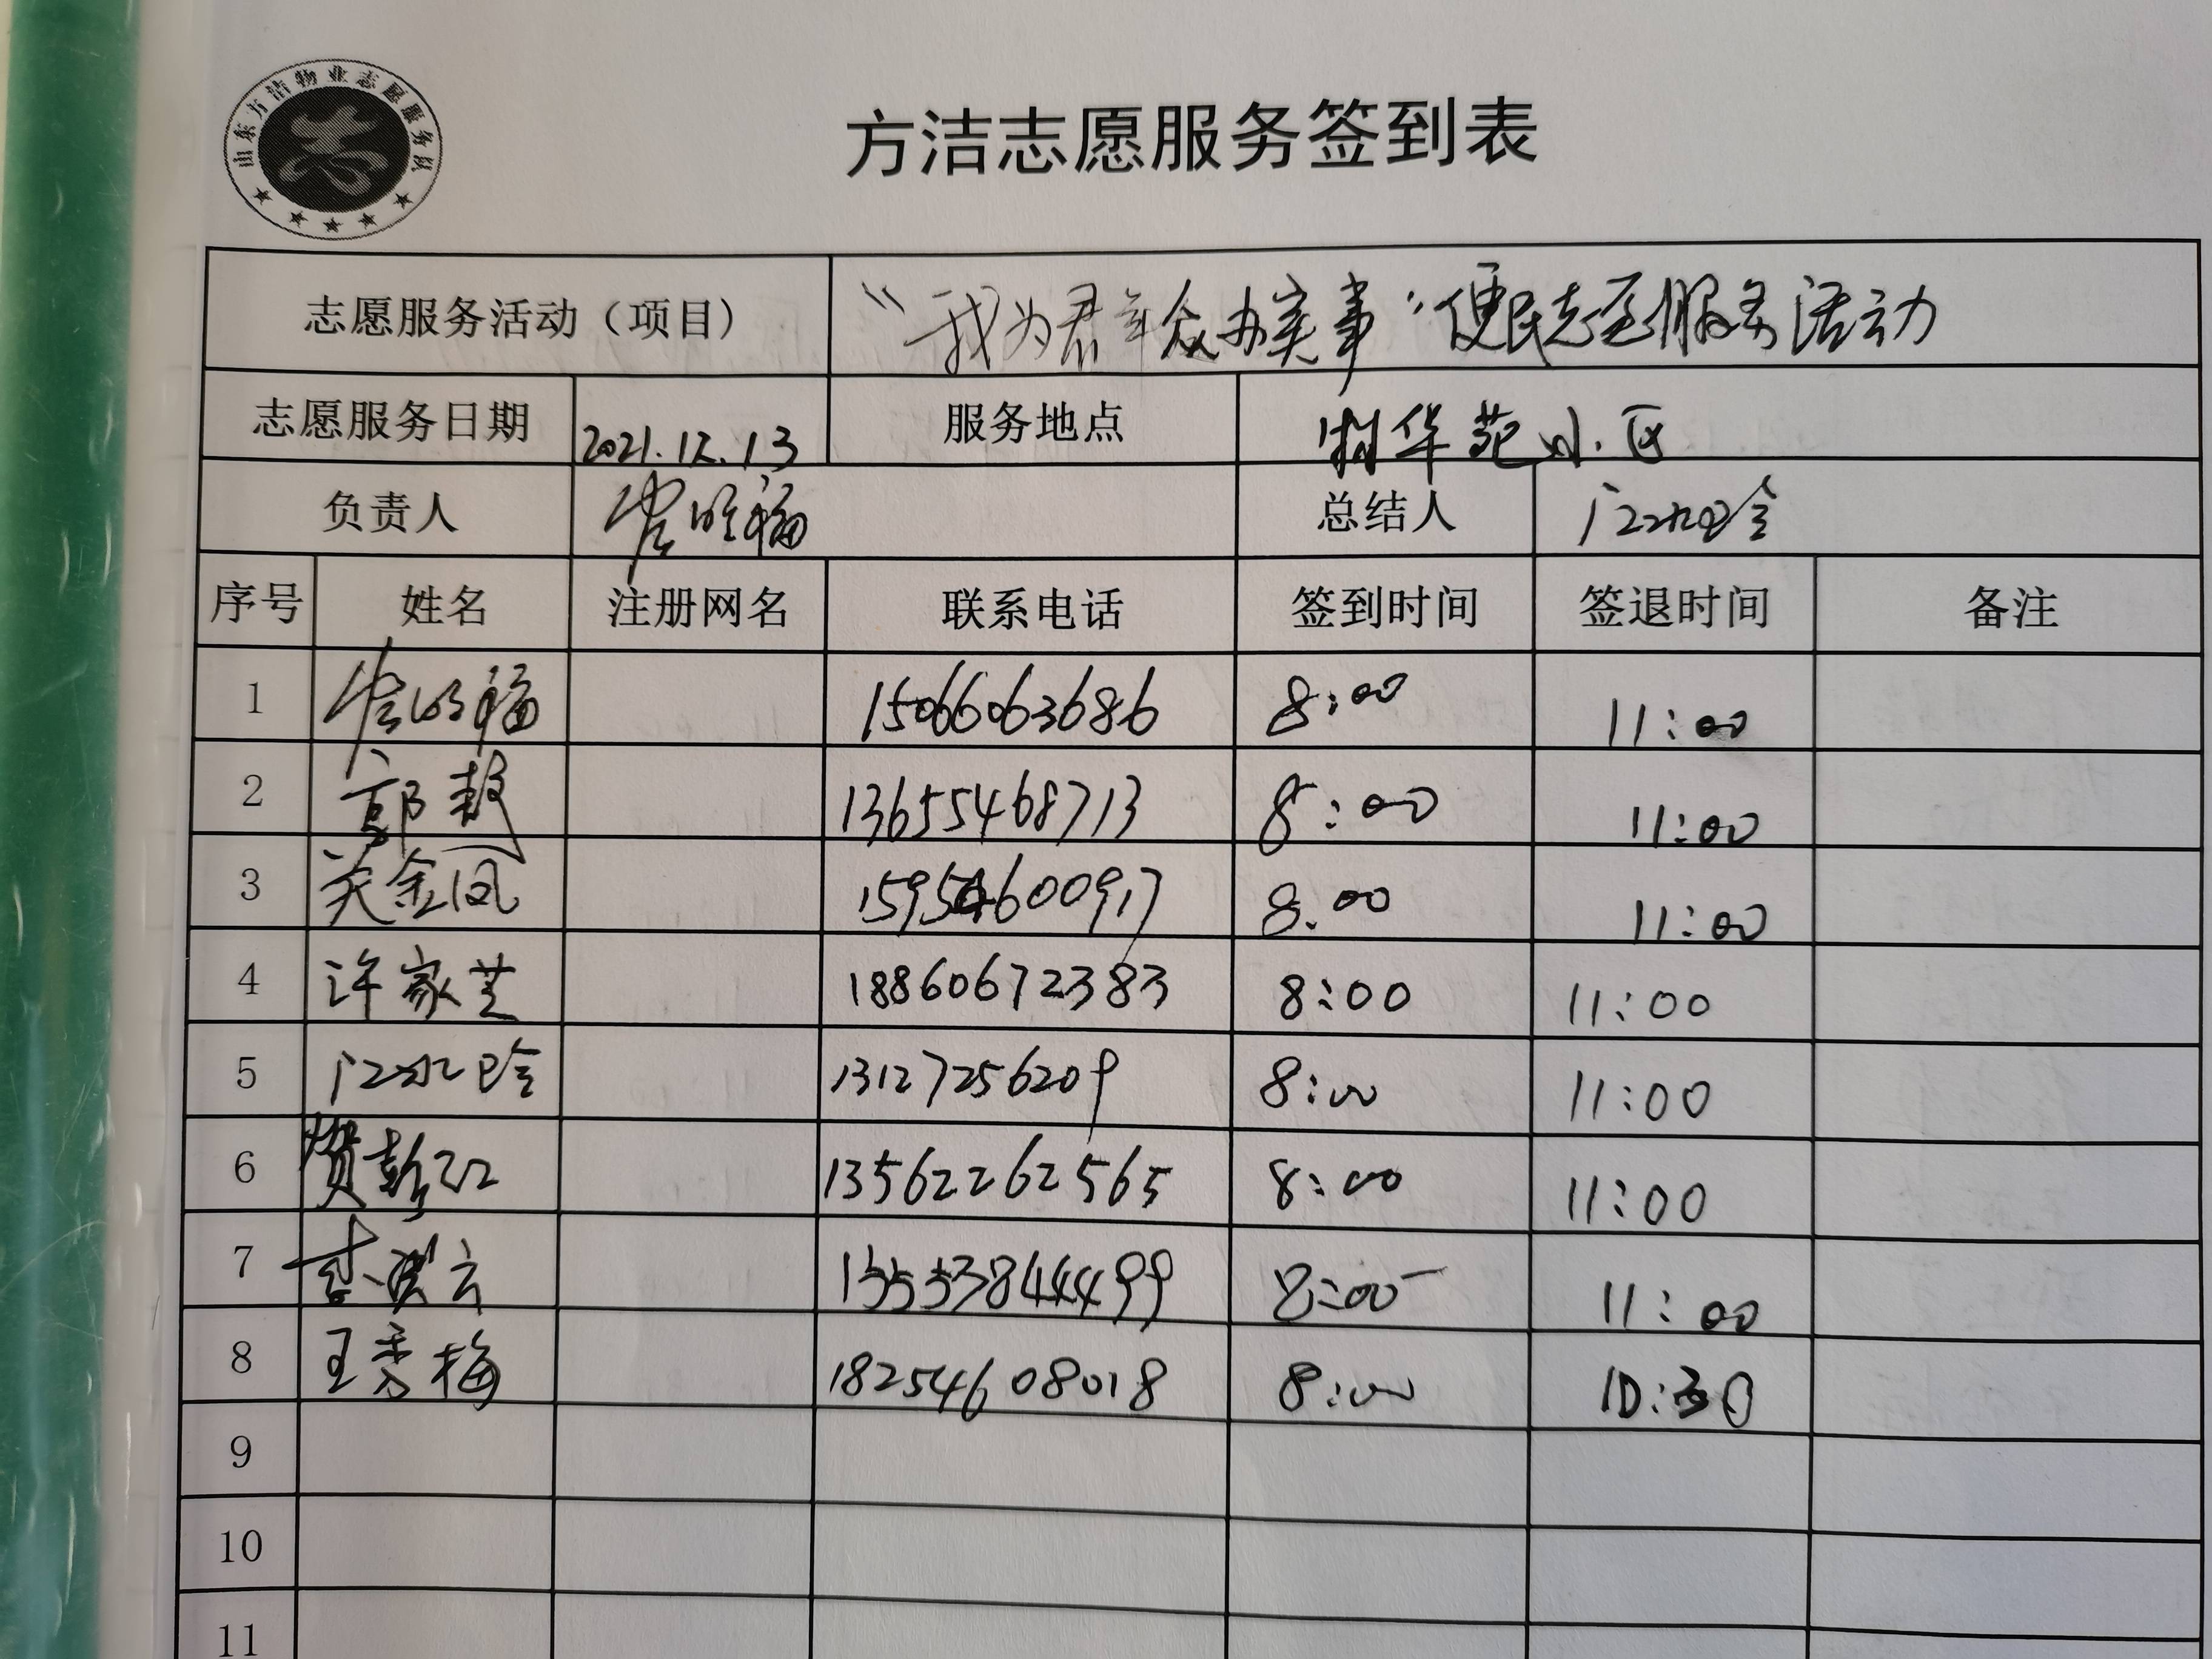 山东方洁物业志愿服务队
方洁志愿服务签到表
志愿服务活动（项目） “我为群众办实事”便民志愿服务活动
志愿服务日期 2021.12.13 服务地点 华苑小区
负责人 总结人
序号 姓名 注册网名 联系电话 签到时间 签退时间 备注
1 15066063686 8:00 11:00
2 郭 13655468713 8:00 11:00
3 关金凤 15954600917 8:00 11:00
4 许家芝 18860672383 8:00 11:00
5 13127256209 8:00 11:00
6 贺彭红 13562262565 8:00 11:00
7 云 8:00 11:00
8 王秀梅 18254608018 8:00 10:30
9
10
11